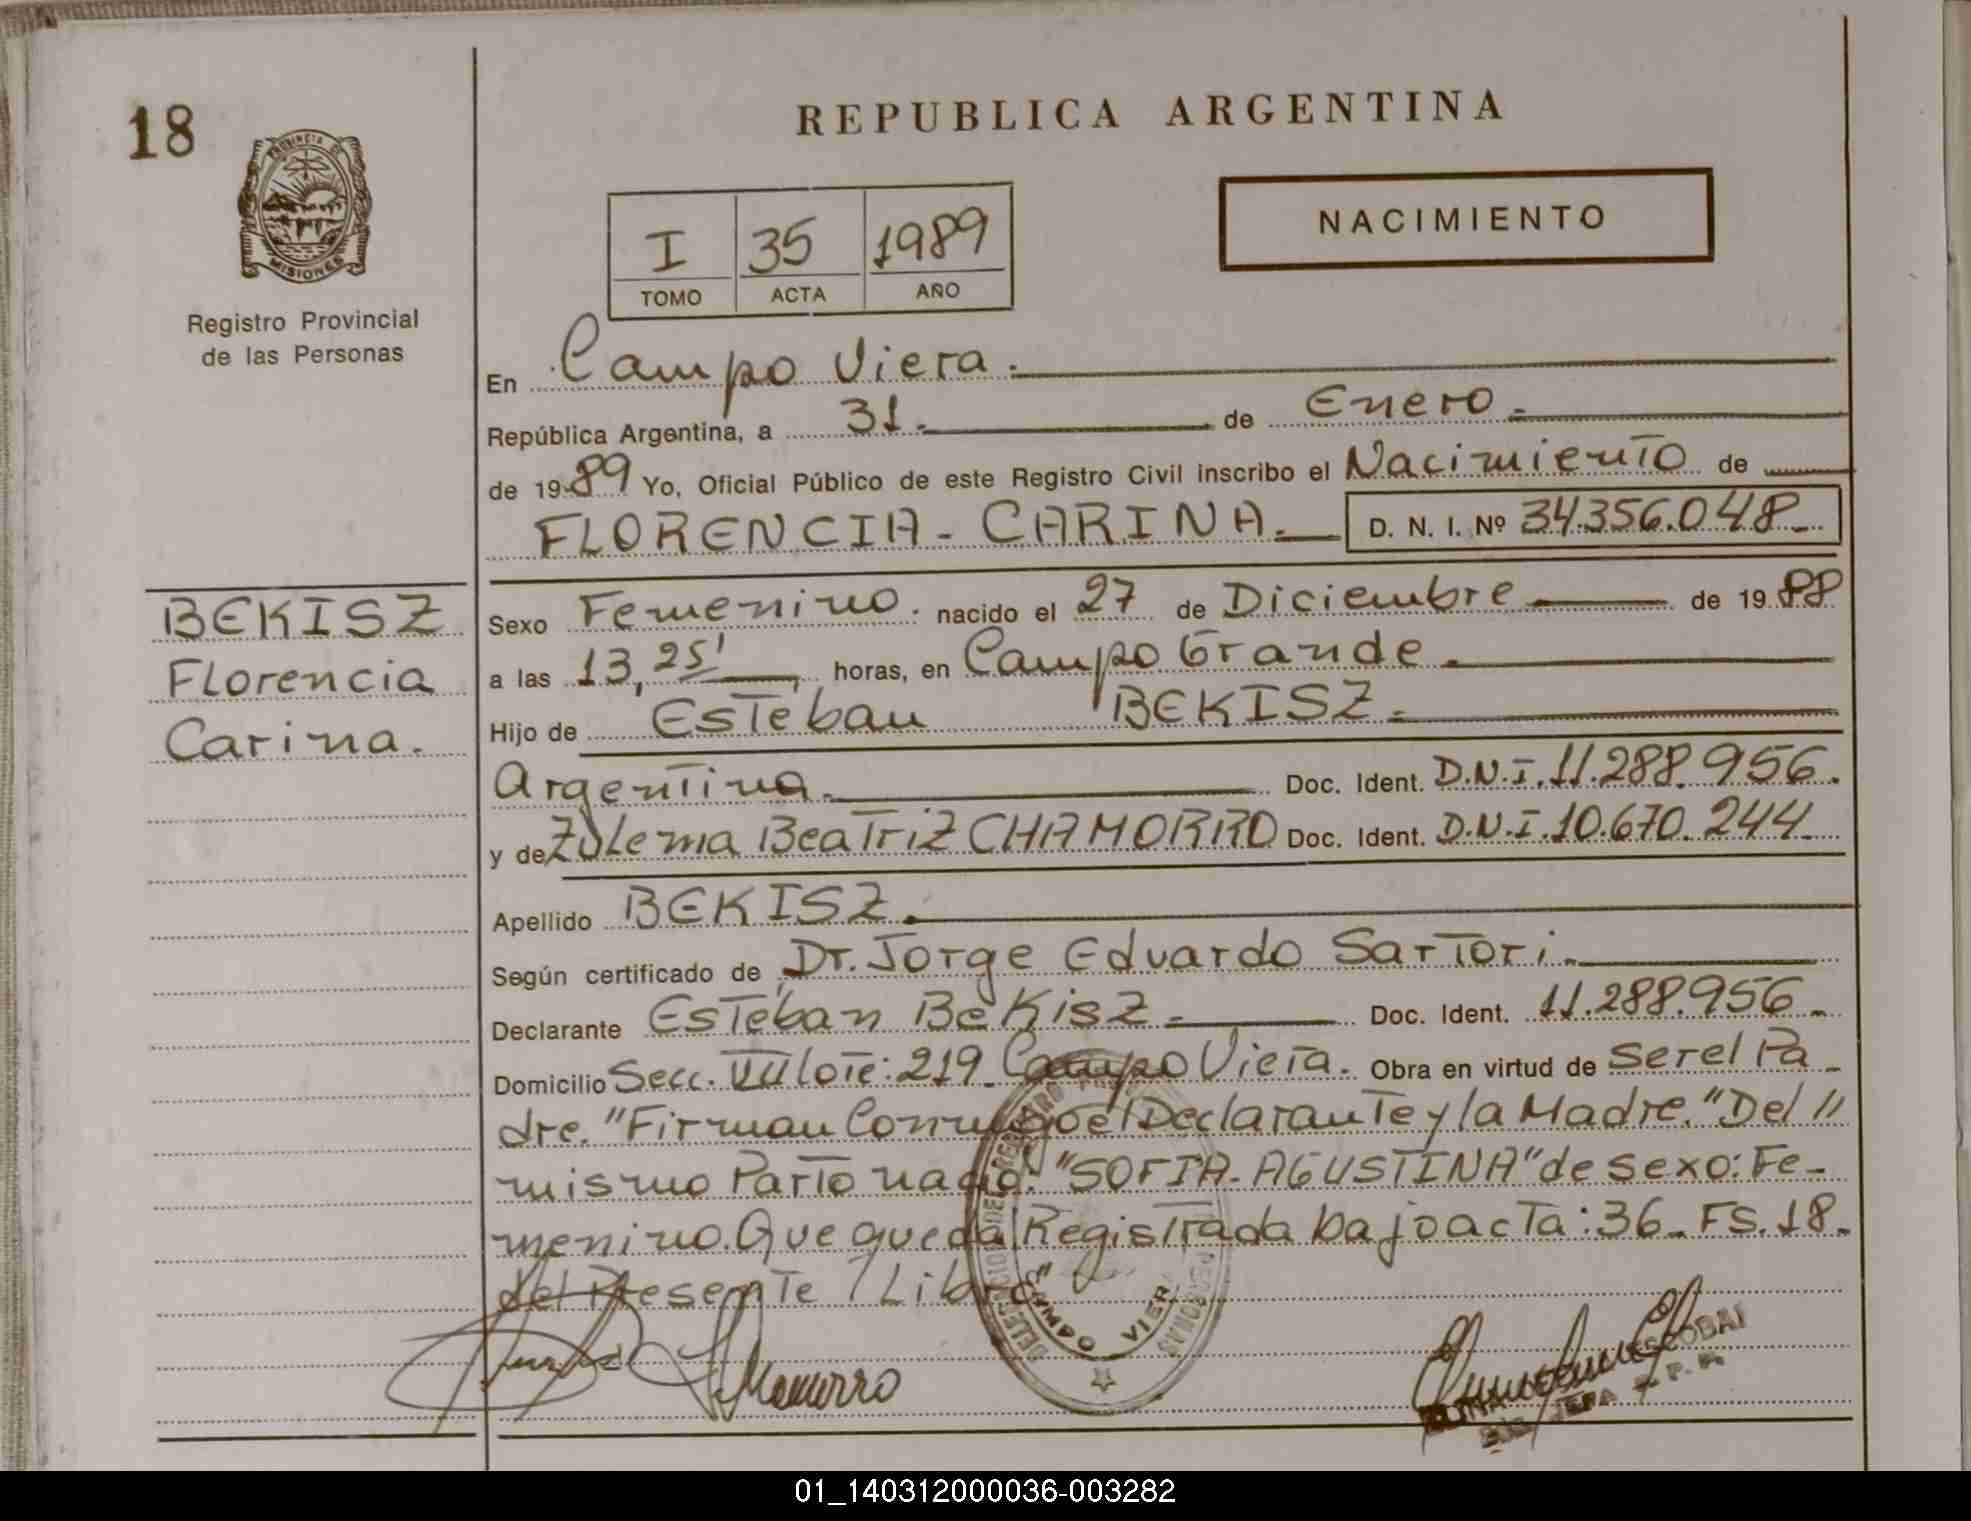 18
PROVINCIA DE
MISIONES
Registro Provincial
de las Personas
REPUBLICA ARGENTINA
I 35 1989
TOMO ACTA AÑO
NACIMIENTO
En Campo Viera.
República Argentina, a 31. de Enero.
de 1989 Yo, Oficial Público de este Registro Civil inscribo el Nacimiento de
FLORENCIA - CARINA. D. N. I. Nº 34.356.048
BEKISZ
Florencia
Carina.
Sexo Femenino. nacido el 27 de Diciembre de 1988
a las 13,25' horas, en Campo Grande.
Hijo de Esteban BEKISZ.
Argentina. Doc. Ident. D.N.I. 11.288.956.
y de Zulema Beatriz CHAMORRO Doc. Ident. D.N.I. 10.670.244
Apellido BEKISZ.
Según certificado de Dr. Jorge Eduardo Sartori.
Declarante Esteban Bekisz. Doc. Ident. 11.288.956
Domicilio Secc. VII lote: 219 Campo Viera. Obra en virtud de Ser el Pa
dre. "Firman Conmigo el Declarante y la Madre. "Del "
mismo Parto nació: "SOFIA - AGUSTINA" de sexo: Fe-
menino. Que queda Registrada bajo acta: 36 Fs. 18.
del Presente Libro
CAMPO VIERA
ESCOBAR
01_140312000036-003282